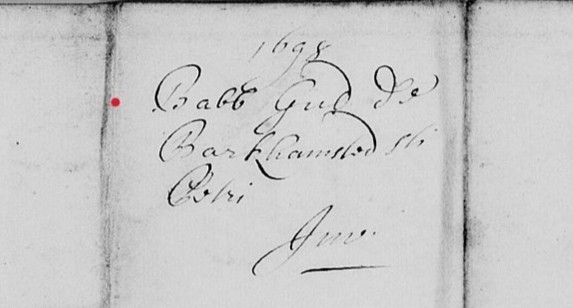 1698
Babb Gud de
Barkhamsted sti
Petri
Inv.